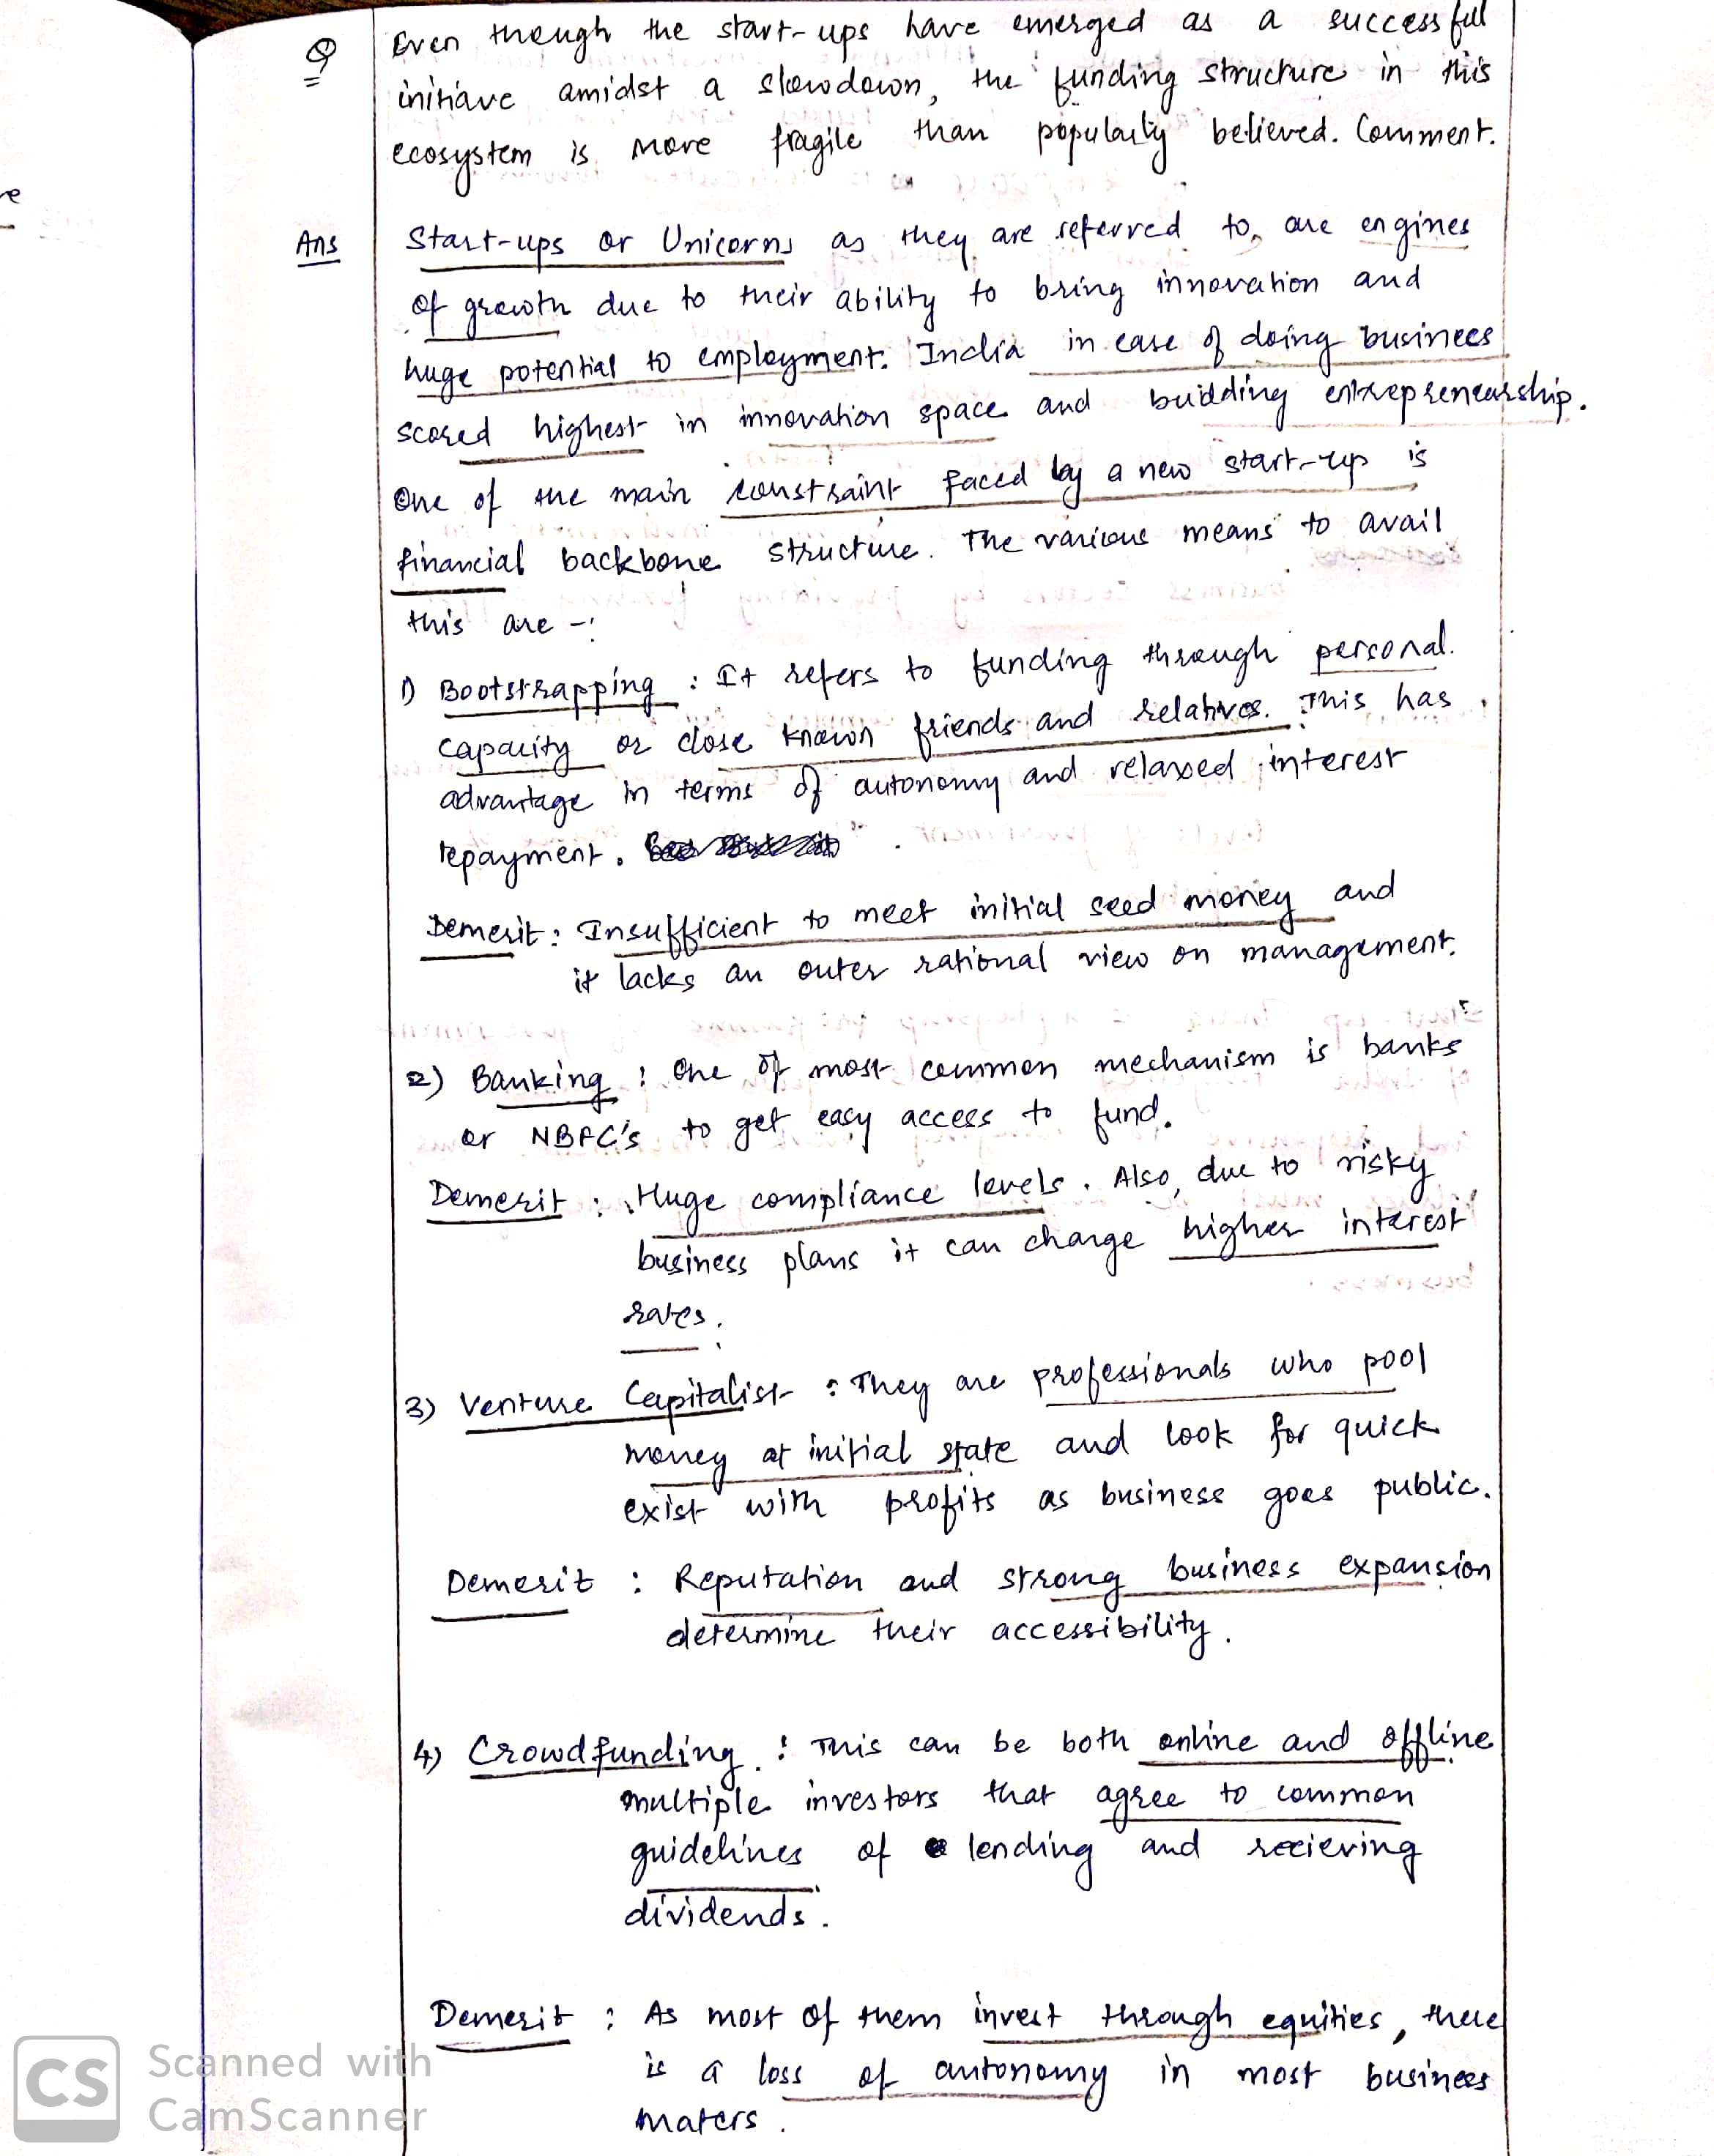 Q Even though the start-ups have emerged as a successful
initiave amidst a slowdown, the funding structure in this
ecosystem is more fragile than popularly believed. Comment.
Ans Start-ups or Unicorns as they are referred to, are engines
of growth due to their ability to bring innovation and
huge potential to employment. India in ease of doing business
scored highest in innovation space and budding entrepreneurship.
One of the main constraint faced by a new start-up is
financial backbone structure. The various means to avail
this are -:
1) Bootstrapping : It refers to funding through personal
capacity or close known friends and relatives. This has
advantage in terms of autonomy and relaxed interest
repayment.
Demerit : Insufficient to meet initial seed money and
it lacks an outer rational view on management.
2) Banking : One of most common mechanism is banks
or NBFC's to get easy access to fund.
Demerit : Huge compliance levels. Also, due to risky
business plans it can charge higher interest
rates.
3) Venture Capitalist : They are professionals who pool
money at initial state and look for quick
exist with profits as business goes public.
Demerit : Reputation and strong business expansion
determine their accessibility.
4) Crowdfunding : This can be both online and offline
multiple investors that agree to common
guidelines of lending and recieving
dividends.
Demerit : As most of them invest through equities, there
is a loss of autonomy in most business
maters.
CS Scanned with
CamScanner